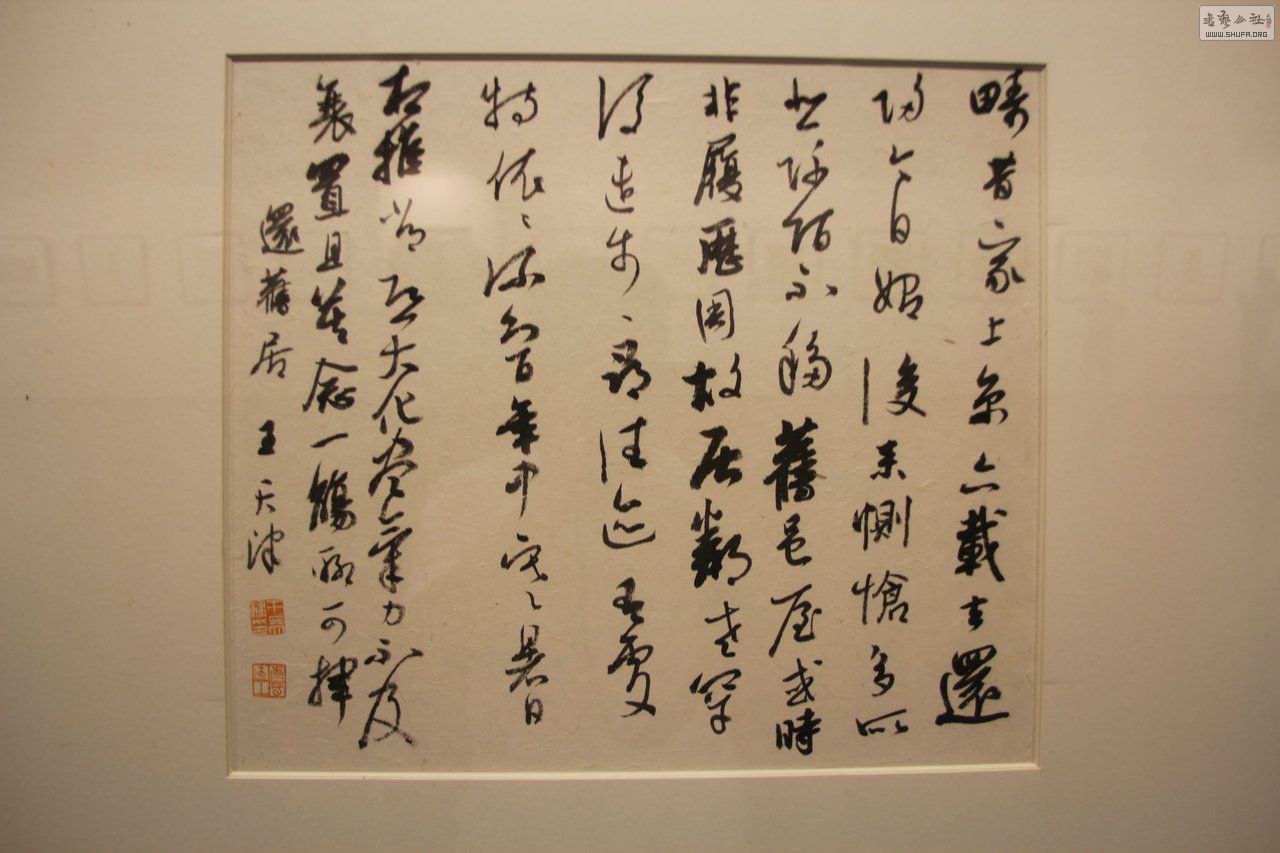 疇昔家上京六載去還
歸今日始復來惻愴多所
悲阡陌不移舊邑屋或時
非履歷周故居鄰老罕
復遺步〻尋往迹有處
特依〻流幻百年中寒暑日
相推常恐大化盡氣力不及
衰置且莫念一觴聊可揮
還舊居 王天津
書藝公社
WWW.SHUFA.ORG